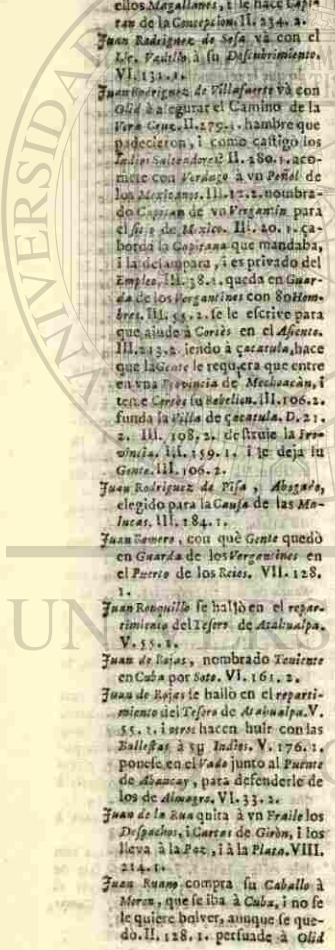 ellos Magallanes, i le hace Capi-
tan de la Concepcion. II. 234. 2.
Juan Rodriguez de Sosa và con el
Lic. Vadillo à su Descubrimiento.
VI. 131. 1.
Juan Rodriguez de Villafuerte và con
Olid à asegurar el Camino de la
Vera Cruz. II. 279. 1. hambre que
padecieron, i como castigo los
Indios Salteadores? II. 280. 1. aco-
mete con Verdugo à vn Peñol de
los Mexicanos. III. 12. 2. nombra-
do Capitan de vn Vergantin para
el sitio de Mexico. III. 20. 1. ça-
borda la Capitana que mandaba,
i la desampara, i es privado del
Empleo. III. 38. 1. queda en Guar-
da de los Vergantines con 80 Hom-
bres. III. 55. 2. se le escrive para
que aiude à Cortès en el Asiento.
III. 213. 2. iendo à çacatula, hace
que la Gente le requiera que entre
en vna Provincia de Mechoacàn, i
teme Cortès su Rebelion. III. 106. 2.
funda la Villa de çacatula. D. 21.
2. III. 198. 2. destruie la Pro-
vincia. III. 159. 1. i le deja su
Gente. III. 106. 2.
Juan Rodriguez de Pisa, Abogado,
elegido para la Causa de las Ma-
lucas. III. 184. 1.
Juan Romero, con què Gente quedò
en Guarda de los Vergantines en
el Puerto de los Reies. VII. 128.
1.
Juan Ronquillo se hallò en el repar-
timiento del Tesoro de Atahualpa.
V. 55. 1.
Juan de Rojas, nombrado Teniente
en Cuba por Soto. VI. 161. 2.
Juan de Rojas se hallò en el reparti-
miento del Tesoro de Atahualpa. V.
55. 1. i otros hacen huir con las
Ballestas à 59 Indios. V. 176. 1.
ponese en el Vado junto al Puente
de Abancay, para defenderle de
los de Almagro. VI. 33. 2.
Juan de la Rua quita à vn Fraile los
Despachos, i Cartas de Giròn, i los
lleva à la Paz, i à la Plata. VIII.
214. 1.
Juan Ruano compra su Caballo à
Moron, que se iba à Cuba, i no se
le quiere bolver, aunque se que-
do. II. 128. 1. persuade à Olid
UN